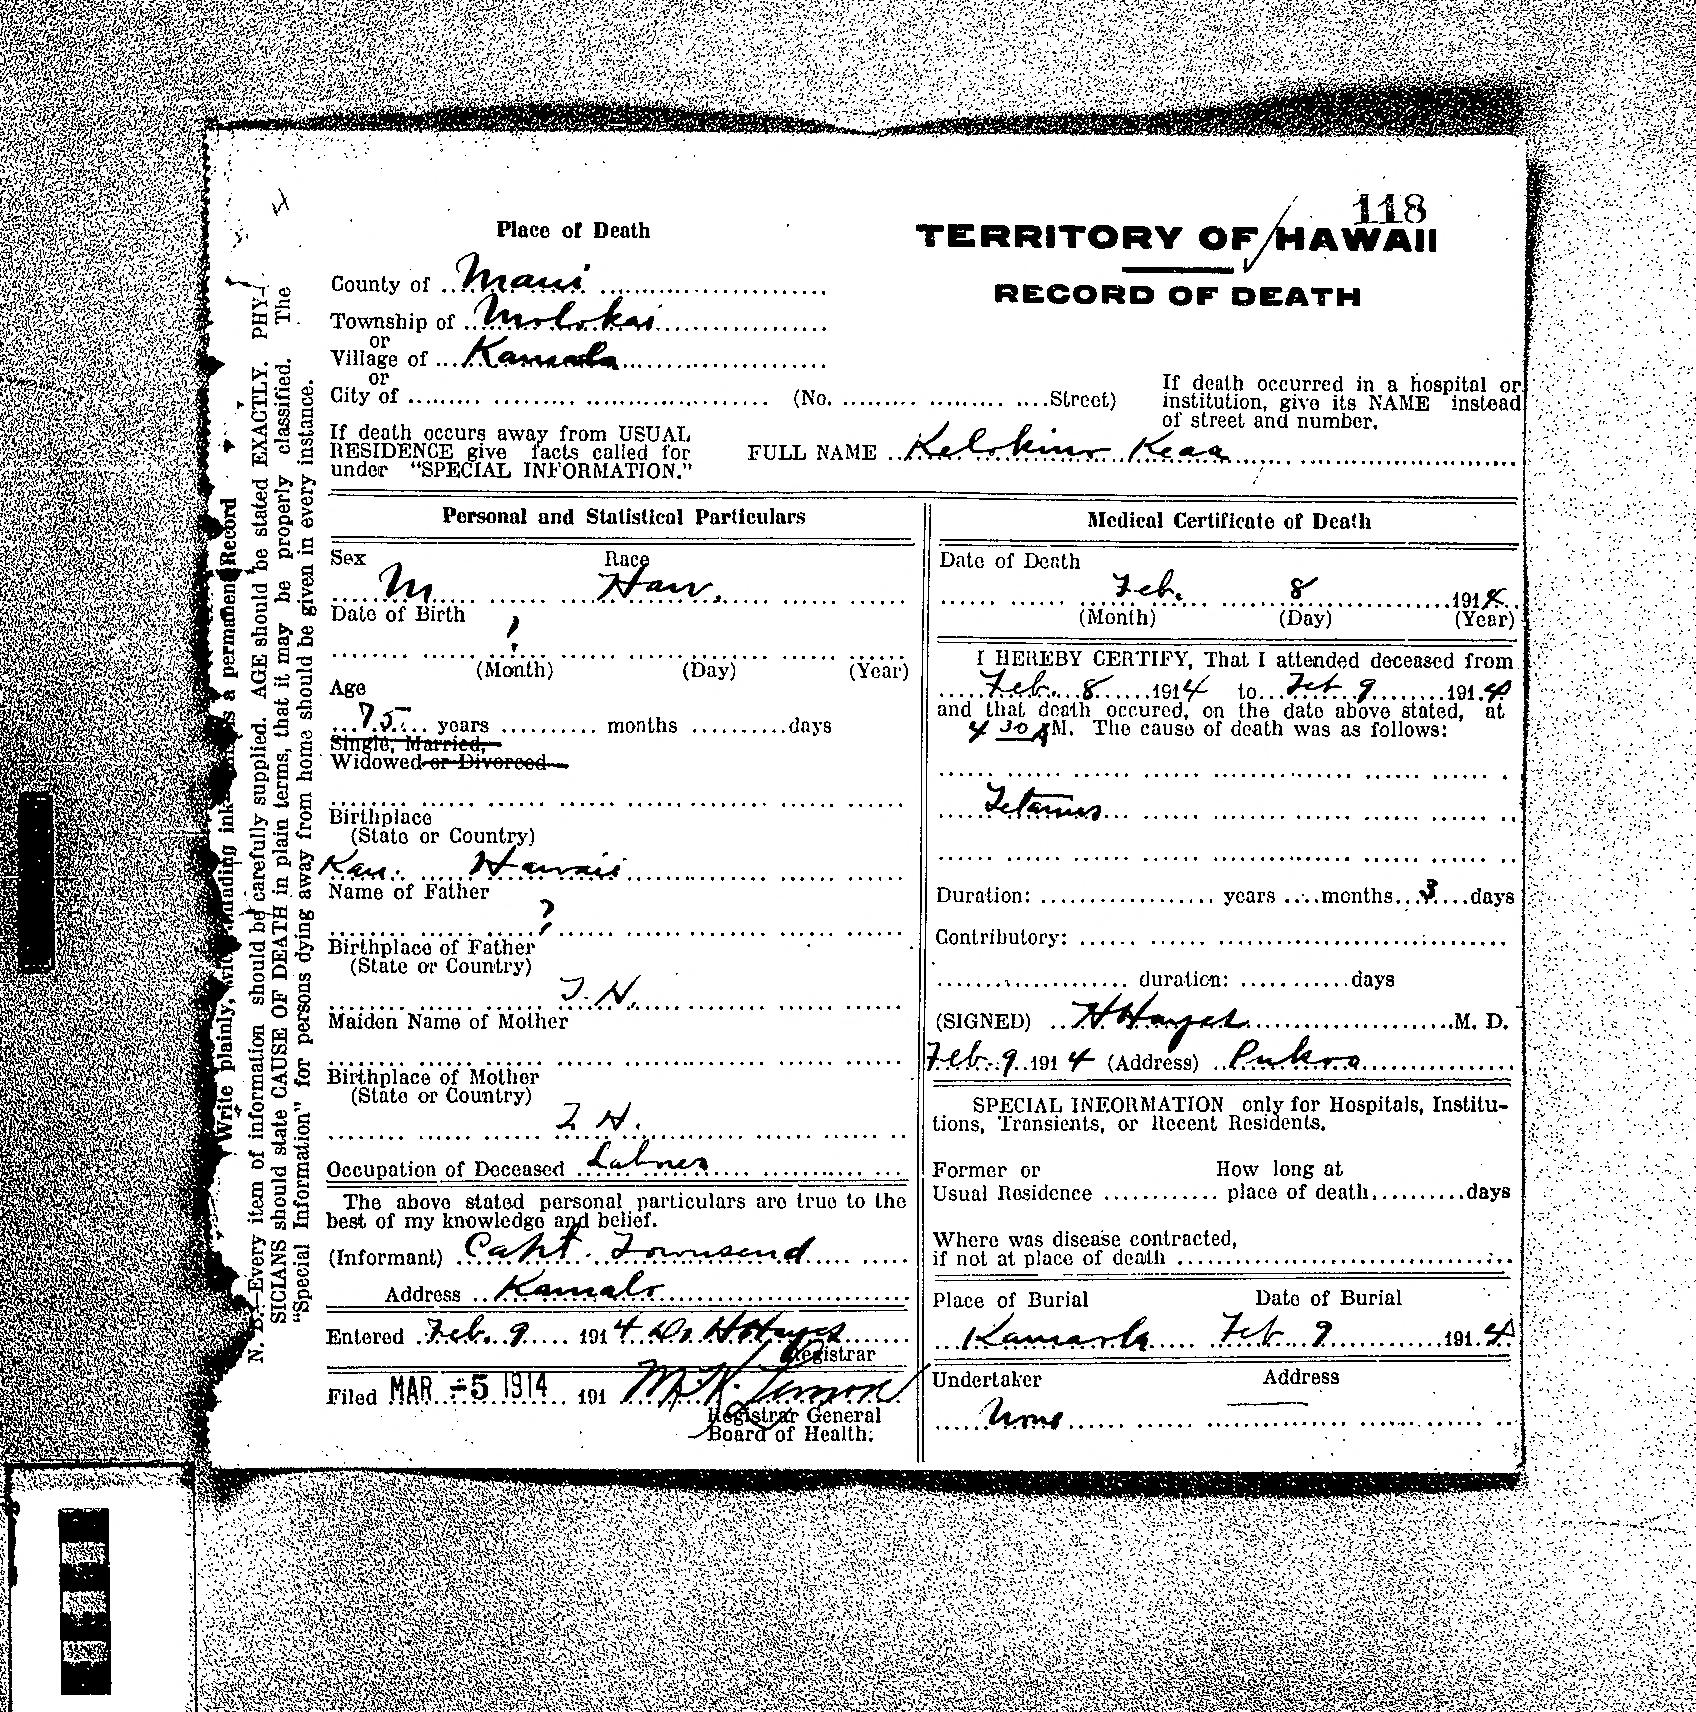 118
TERRITORY OF HAWAII
RECORD OF DEATH
Place of Death
County of Maui
Township of Molokai
or
Village of Kamalo
or
City of (No. Street)
If death occurred in a hospital or
institution, give its NAME instead
of street and number.
If death occurs away from USUAL
RESIDENCE give facts called for
under "SPECIAL INFORMATION."
FULL NAME Kelokino Keaa
Personal and Statistical Particulars
Sex Race
M Haw.
Date of Birth
?
(Month) (Day) (Year)
Age
75 years months days
Single, Married,
Widowed or Divorced
Birthplace
(State or Country)
Kau. Hawaii
Name of Father
?
Birthplace of Father
(State or Country)
T. H.
Maiden Name of Mother
Birthplace of Mother
(State or Country)
T H.
Occupation of Deceased Laborer
The above stated personal particulars are true to the
best of my knowledge and belief.
(Informant) Capt. Townsend
Address Kamalo
Entered Feb. 9 1914 Dr H Hayes
Registrar
Filed MAR -5 1914 191
Registrar General
Board of Health.
Medical Certificate of Death
Date of Death
Feb. 8 1914
(Month) (Day) (Year)
I HEREBY CERTIFY, That I attended deceased from
Feb. 8 1914 to Feb 9 1914
and that death occured, on the date above stated, at
4 30 A M. The cause of death was as follows:
Tetanus
Duration: years months 3 days
Contributory:
duration: days
(SIGNED) H Hayes M. D.
Feb. 9 1914 (Address) Pukoo
SPECIAL INFORMATION only for Hospitals, Institu-
tions, Transients, or Recent Residents.
Former or How long at
Usual Residence place of death, days
Where was disease contracted,
if not at place of death
Place of Burial Date of Burial
Kamalo Feb 9 1914
Undertaker Address
None
Write plainly, ink a permanent Record
N. B.—Every item of information should be carefully supplied. AGE should be stated EXACTLY. PHY-
SICIANS should state CAUSE OF DEATH in plain terms, that it may be properly classified. The
"Special Information" for persons dying away from home should be given in every instance.